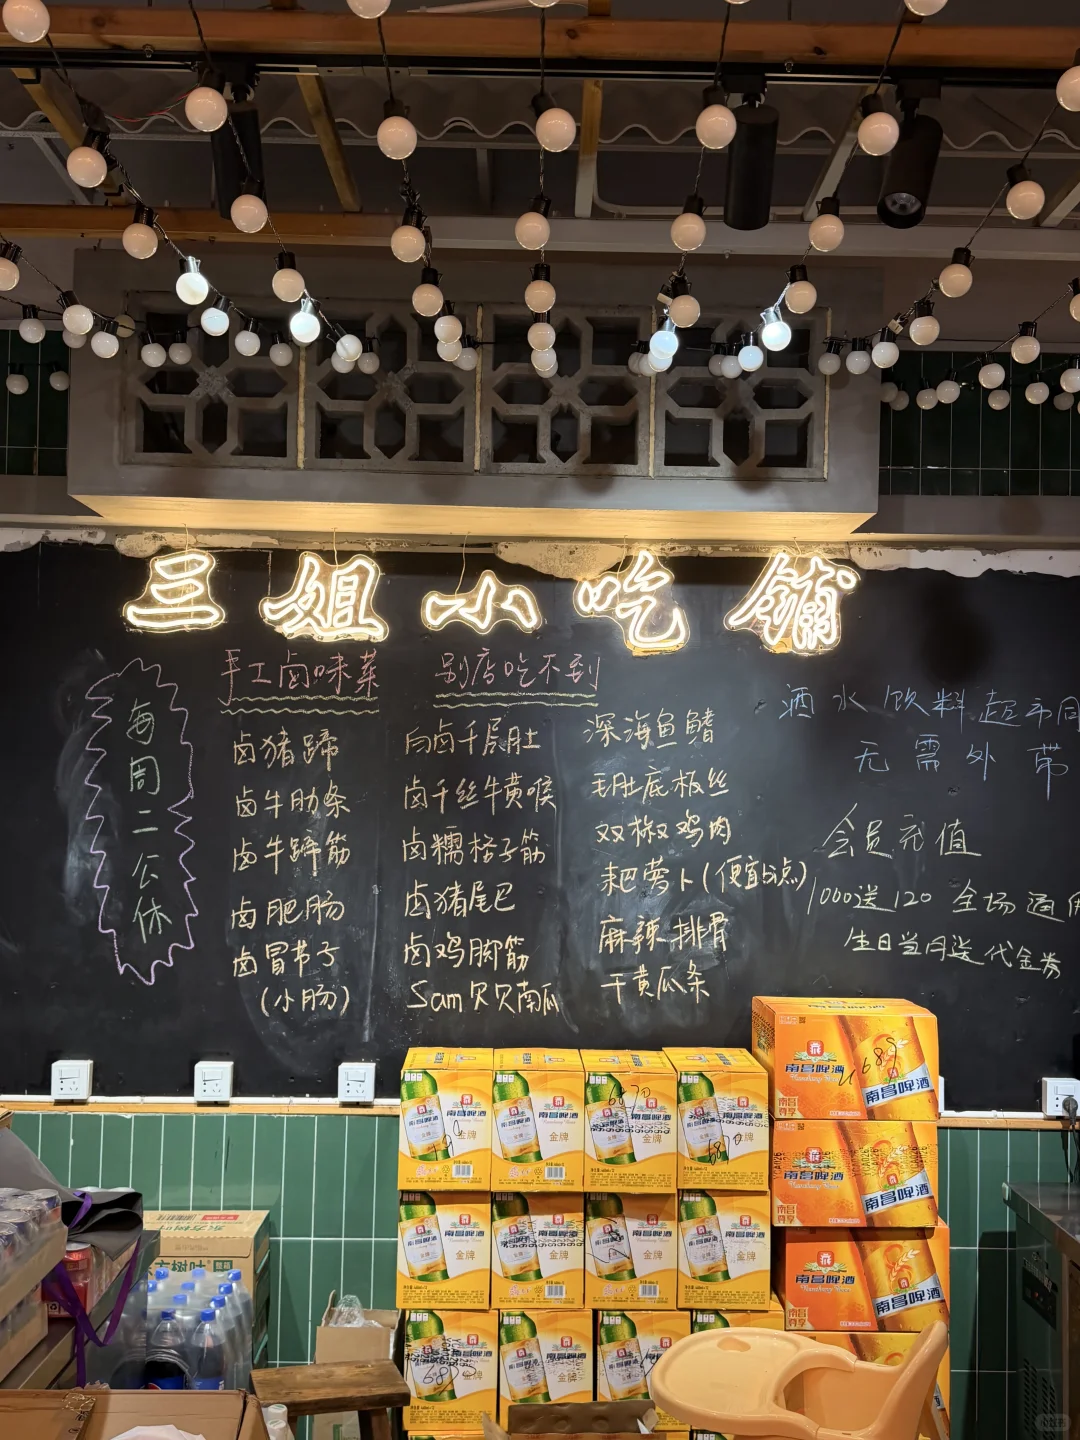 三姐小吃铺
手工卤味菜
别店吃不到
每周二公休
卤猪蹄
卤牛肋条
卤牛蹄筋
卤肥肠
卤冒节子
(小肠)
白卤千层肚
卤千丝牛黄喉
卤糯格子筋
卤猪尾巴
卤鸡脚筋
Sam贝贝南瓜
深海鱼鳍
毛肚底板丝
双椒鸡肉
耙萝卜(便宜点)
麻辣排骨
干黄瓜条
酒水饮料超市同
无需外带
会员充值
1000送120 全场通用
生日当月送代金券
南昌啤酒
金牌
南昌啤酒
金牌
南昌啤酒
金牌
南昌啤酒
南昌啤酒
南昌啤酒
南昌啤酒
南昌啤酒
东方树叶